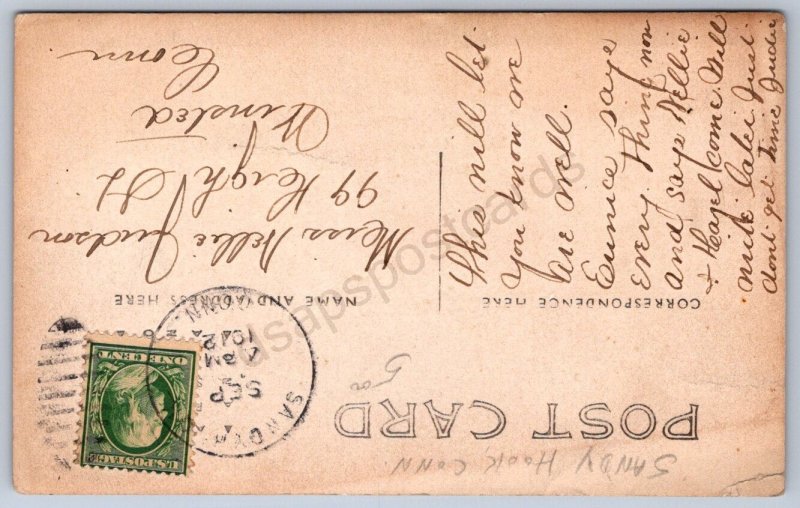 SANDY HOOK, CONN
POST CARD
5a
CORRESPONDENCE HERE
NAME AND ADDRESS HERE
This will let
you know we
are well.
Eunice says
every thing now
and says Nellie
+ Hazel come. Will
write later Just
dont get time Judie
SANDY
CONN.
SEP
4 PM
1912
U.S. POSTAGE
ONE CENT
Miss Nellie Judson
99 High St
Winsted
Conn
dsapspostcards